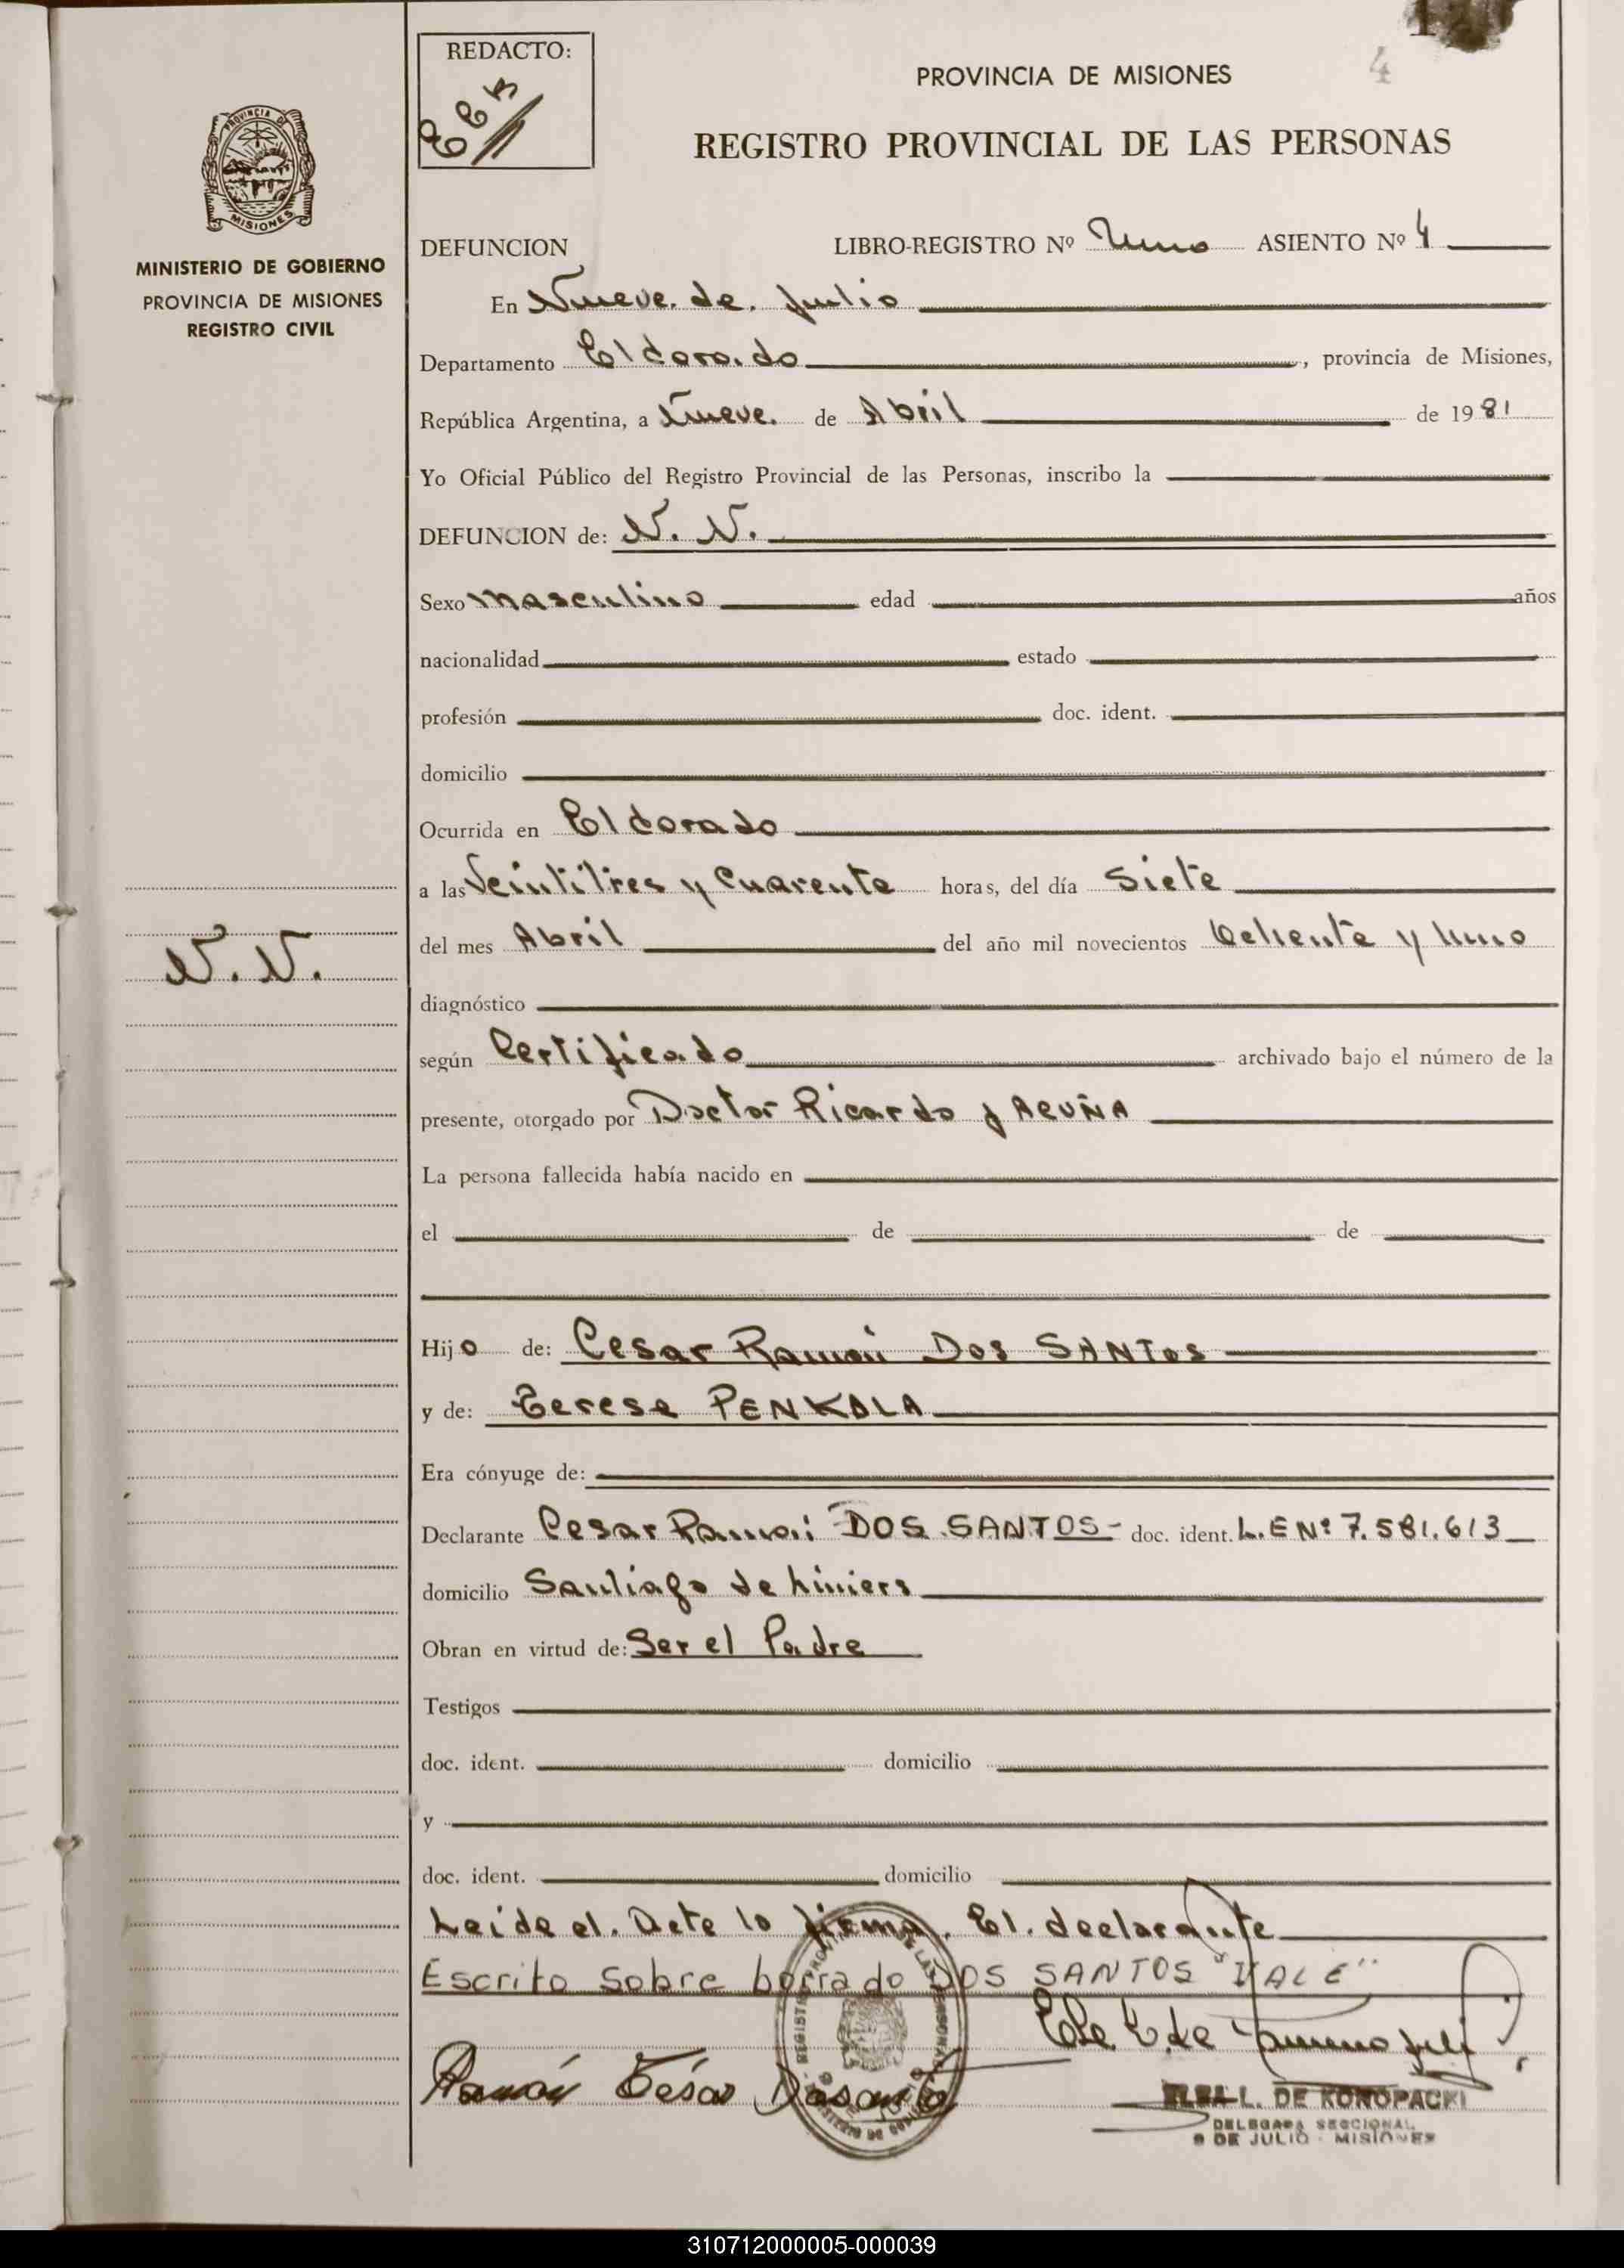 4
REDACTO:
PROVINCIA DE MISIONES
REGISTRO PROVINCIAL DE LAS PERSONAS
PROVINCIA DE
MISIONES
MINISTERIO DE GOBIERNO
PROVINCIA DE MISIONES
REGISTRO CIVIL
DEFUNCION LIBRO-REGISTRO Nº Uno ASIENTO Nº 4
En Nueve de Julio
Departamento Eldorado, provincia de Misiones,
República Argentina, a Nueve de Abril de 1981
Yo Oficial Público del Registro Provincial de las Personas, inscribo la
DEFUNCION de: N. N.
Sexo Masculino edad años
nacionalidad estado
profesión doc. ident.
domicilio
Ocurrida en Eldorado
a las Veintitres y Cuarenta horas, del día Siete
del mes Abril del año mil novecientos Ochenta y Uno
N. N.
diagnóstico
según Certificado archivado bajo el número de la
presente, otorgado por Doctor Ricardo J ACUÑA
La persona fallecida había nacido en
el de de
Hijo de: Cesar Ramón Dos SANTOS
y de: Teresa PENKALA
Era cónyuge de:
Declarante Cesar Ramón DOS SANTOS- doc. ident. L.E Nº 7.581.613
domicilio Santiago de Liniers
Obran en virtud de: Ser el Padre
Testigos
doc. ident. domicilio
y
doc. ident. domicilio
Leida el Acta lo firma. El declarante
Escrito sobre borrado DOS SANTOS "VALE"
Ramón César Dosanto
ELSA L. DE KONOPACKI
DELEGADA SECCIONAL
9 DE JULIO - MISIONES
310712000005-000039